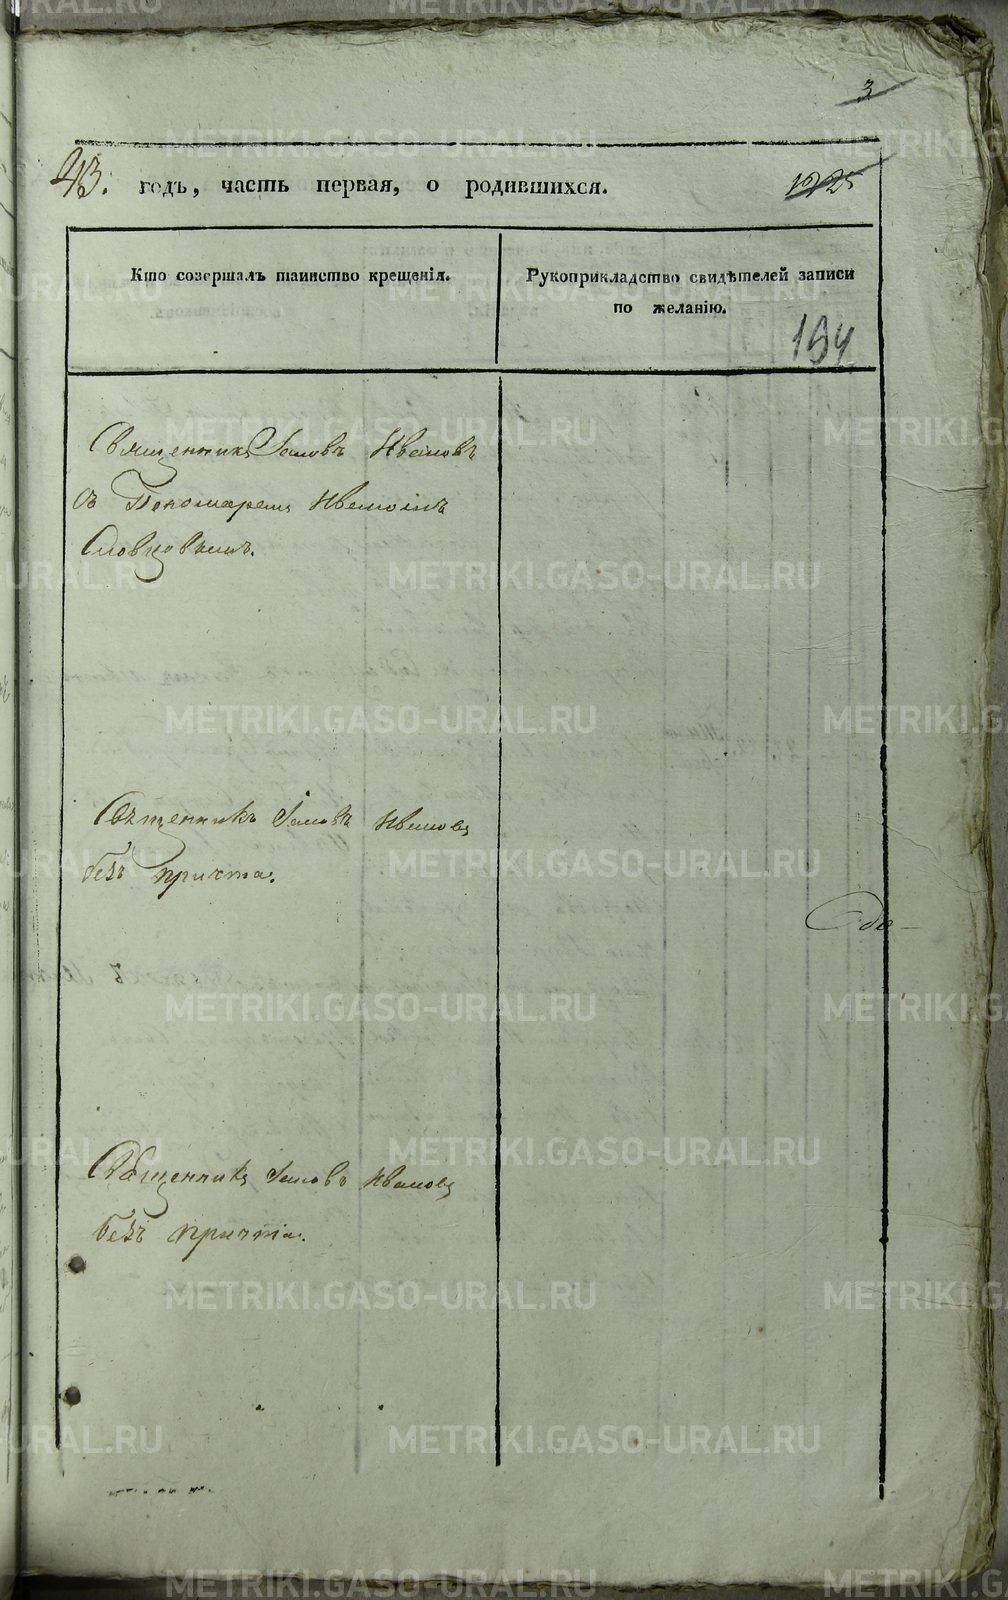 3
43. годъ, часть первая, о родившихся.
1025
Кто совершалъ таинство крещенія.
Рукоприкладство свидѣтелей записи
по желанію.
194
Священникъ Іаковъ Ивановъ
съ Пономаремъ
Словцовымъ.
Священникъ Іаковъ Ивановъ
безъ причта.
Священникъ Іаковъ Ивановъ
безъ причта.
METRIKI.GASO-URAL.RU